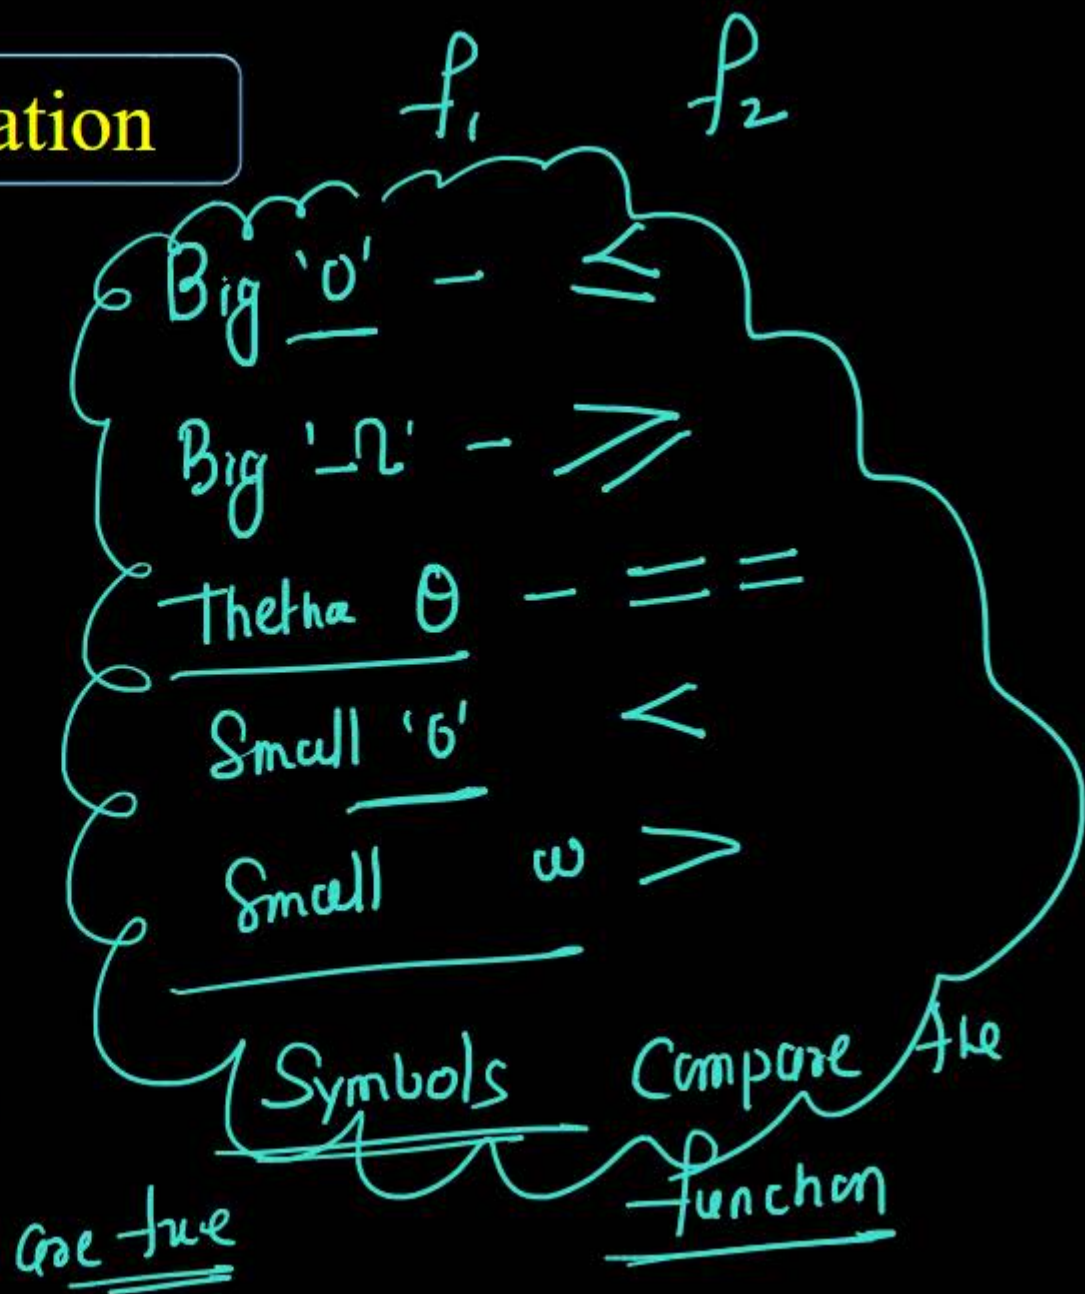 ation
f₁ f₂
Big 'O' - ≤
Big 'Ω' - ≥
Thetha θ - = =
Small 'o' <
Small ω >
Symbols Compare the
function
are true